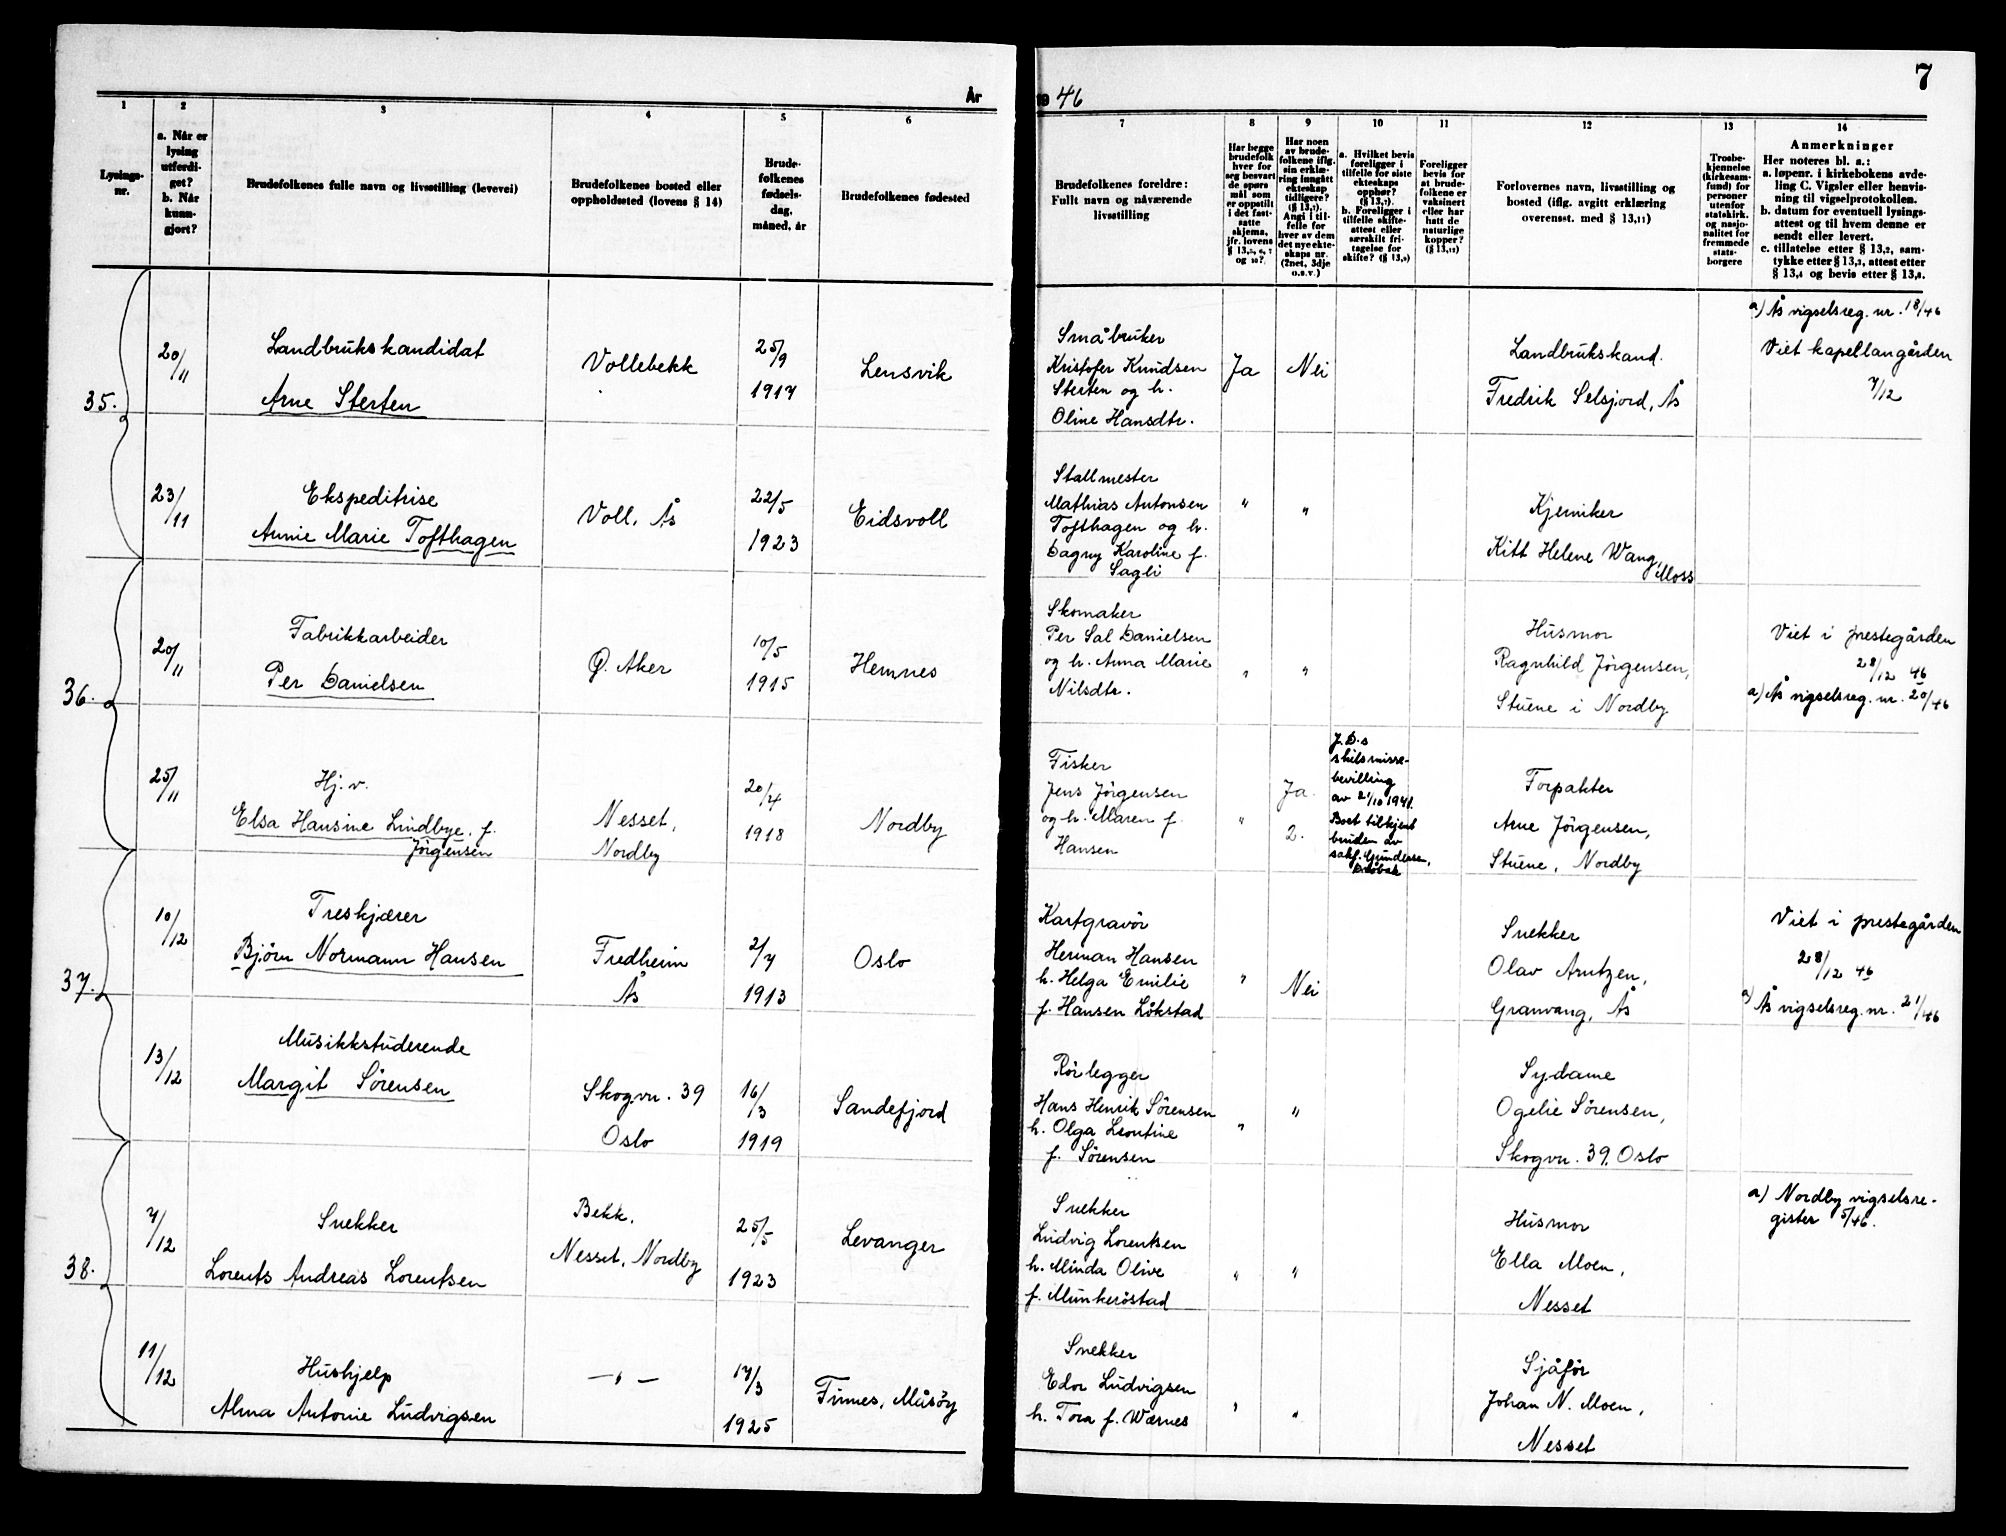 7
År
1946
1
2
3
4
5
6
7
8
9
10
11
12
13
14
Lysings-
nr.
a. Når er
lysing
utferdi-
get?
b. Når
kunn-
gjort?
Brudefolkenes fulle navn og livsstilling (levevei)
Brudefolkenes bosted eller
oppholdssted (lovens § 14)
Brude-
folkenes
fødsels-
dag,
måned, år
Brudefolkenes fødested
Brudefolkenes foreldre:
Fullt navn og nåværende
livsstilling
Har begge
brudefolk
hver for
seg besvart
de spørs
mål som
er oppstilt
i det fast-
satte
skjema,
jfr. lovens
og 10?
Har noen
av brude-
folkene iflg.
sin erklæ-
ring inngått
ekteskap
tidligere?
Angi i til-
felle for
hver av dem
det nye ekte-
skaps nr.
(2net, 3dje
o.s.v.)
a. Hvilket bevis
foreligger i
tilfelle for siste
ekteskaps
opphør?
b. Foreligger i
tilfelle skifte-
attest eller
særskilt fri-
tagelse for
skifte?
Foreligger
bevis for
at brude-
folkene er
vaksinert
eller har
hatt de
naturlige
kopper?
Forlovernes navn, livsstilling og
bosted (iflg. avgitt erklæring
overenst. med § 13,11)
Trosbe-
kjennelse
(kirkesam-
fund) for
personer
utenfor
statskirk.
og nasjo-
nalitet for
fremmede
stats-
borgere
Anmerkninger
Her noteres bl. a.:
a. løpenr. i kirkebokens avde-
ling C. Vigsler eller henvis-
ning til vigselprotokollen.
b. datum for eventuell lysings-
attest og til hvem denne er
sendt eller levert.
c. tillatelse etter § 13,2, sam-
tykke etter § 13,3, attest etter
§ 13,4 og bevis etter § 13,8.
35.
20/11
Landbrukskandidat
Arne Sterten
Vollebekk
25/9
1917
Lensvik
Småbruker
Kristofer Knudsen
Sterten og h.
Oline Hansdtr.
Ja
Nei
Landbrukskand.
Fredrik Selsjord, Ås
a) Ås vigselsreg. nr. 18/46
Viet kapellangården
7/12
23/11
Ekspeditrise
Annie Marie Tofthagen
Voll, Ås
22/5
1923
Eidsvoll
Stallmester
Mathias Antonsen
Tofthagen og h.
Dagny Karoline f.
Sagli
"
"
Kjemiker
Kitt Helene Wang,
Moss
36.
20/11
Fabrikkarbeider
Per Danielsen
Ø. Aker
10/5
1915
Hemnes
Skomaker
Per Sal Danielsen
og h. Anna Marie
Nilsdtr.
"
"
Husmor
Ragnhild Jørgensen,
Stuene i Nordby
Viet i prestegården
28/12 46
a) Ås vigselsreg. nr. 20/46
25/11
Hj. v.
Elsa Hansine Lindbye, f.
Jørgensen
Nesset,
Nordby
20/4
1918
Nordby
Fisker
Jens Jørgensen
og h. Maren f.
Hansen
"
Ja
2.
J.D.s
skilsmisse-
bevilling
av 21/10 1941.
Boet tilkjent
bruden av
sakf. Gundersen,
Drøbak
Forpakter
Arne Jørgensen,
Stuene, Nordby
37.
10/12
Treskjærer
Bjørn Normann Hansen
Fredheim
Ås
2/7
1913
Oslo
Kartgravør
Herman Hansen
h. Helga Emilie
f. Hansen Løkstad
"
Nei
Snekker
Olav Arntzen,
Granvang, Ås
Viet i prestegården
28/12 46
a) Ås vigselsreg. nr. 21/46
13/12
Musikkstuderende
Margit Sørensen
Skogvn. 39
Oslo
16/3
1919
Sandefjord
Rørlegger
Hans Henrik Sørensen
h. Olga Leontine
f. Sørensen
"
"
Sydame
Ogelie Sørensen,
Skogvn. 39, Oslo
38.
7/12
Snekker
Lorents Andreas Lorentsen
Bekk,
Nesset, Nordby
25/5
1923
Levanger
Snekker
Ludvig Lorentsen
h. Minda Olive
f. Munkerøstad
"
"
Husmor
Ella Moen,
Nesset
a) Nordby vigselsre-
gister 5/46.
11/12
Hushjelp
Alma Antonie Ludvigsen
— " —
17/3
1925
Finnes, Måsøy
Snekker
Edor Ludvigsen
h. Tora f. Wærnes
"
"
Sjåfør
Johan N. Moen,
Nesset